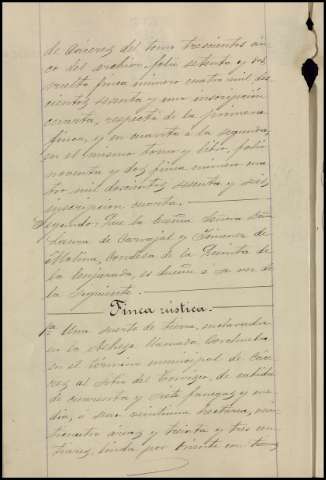 de Cáceres del tomo trescientos cin-
co del archivo, folio setenta y dos
vuelto finca número cuatro mil dos
cientos sesenta y una inscripción
cuarta, respecto de la primera
finca, y en cuanto a la segunda,
en el mismo tomo y libro, folio
noventa y dos finca número cua-
tro mil doscientos sesenta y seis,
inscripcion cuarta.
Segundo: Que la Exma Señora Doña
Laura de Carvajal y Jimenez de
Molina, Condesa de la Quinta de
la Enjarada, es dueña de
la siguiente.
Finca rústica.
1ª Una suerte de tierra, enclavada
en la dehesa llamada
en el término municipal de Cáce-
res al sitio del de cabida
de cuarenta y siete fanegas y me-
dia, ó sean veintiuna hectareas,
areas y treinta y tres cen-
tiareas, linda por Oriente con